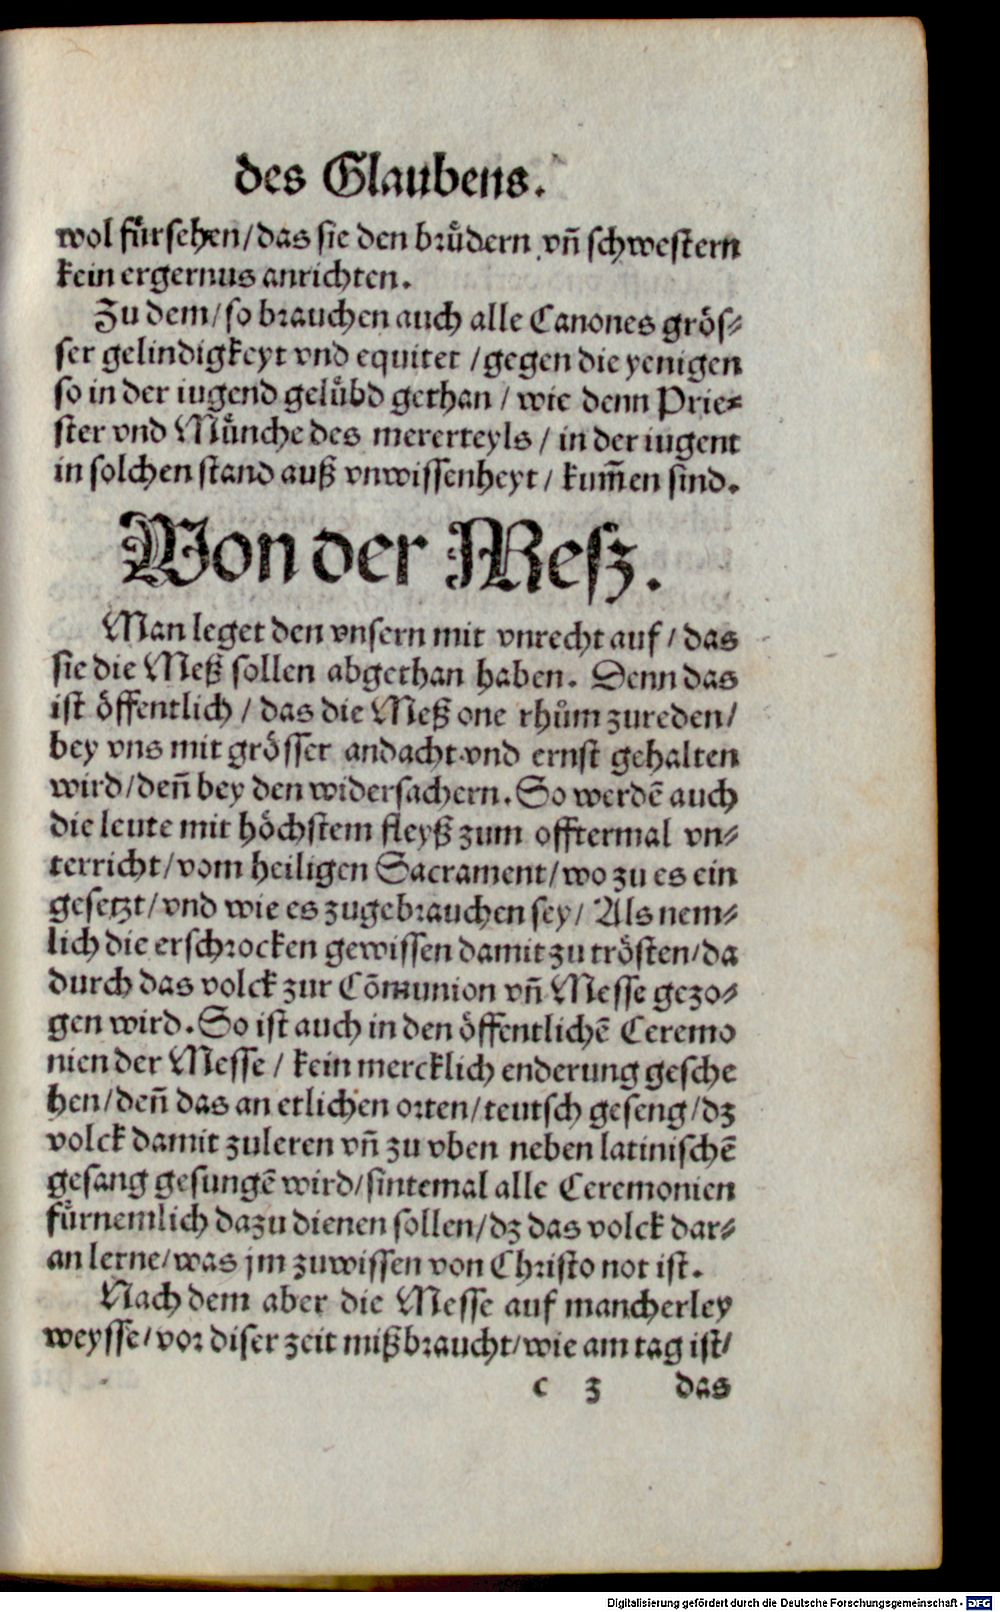 des Glaubens.
wol fuͤrsehen/das sie den bruͤdern vñ schwestern
kein ergernus anrichten.
Zu dem/so brauchen auch alle Canones grös⸗
ser gelindigkeyt vnd equitet /gegen die yenigen
so in der iugend geluͤbd gethan / wie denn Prie⸗
ster vnd Muͤnche des mererteyls / in der iugent
in solchen stand auß vnwissenheyt / kum̃en sind.
Von der Mesz.
Man leget den vnsern mit vnrecht auf / das
sie die Meß sollen abgethan haben. Denn das
ist öffentlich / das die Meß one rhuͦm zureden/
bey vns mit grösser andacht vnd ernst gehalten
wird/deñ bey den widersachern. So werdẽ auch
die leute mit höchstem fleyß zum offtermal vn⸗
terricht/vom heiligen Sacrament/wo zu es ein
gesetzt/vnd wie es zugebrauchen sey/ Als nem⸗
lich die erschrocken gewissen damit zu trösten/da
durch das volck zur Cõmunion vñ Messe gezo⸗
gen wird. So ist auch in den öffentlichẽ Ceremo
nien der Messe / kein mercklich enderung gesche
hen/deñ das an etlichen orten/teutsch geseng/dz
volck damit zuleren vñ zu vben neben latinischẽ
gesang gesungẽ wird/sintemal alle Ceremonien
fuͤrnemlich dazu dienen sollen/dz das volck dar⸗
an lerne/was jm zuwissen von Christo not ist.
Nach dem aber die Messe auf mancherley
weysse/vor diser zeit mißbraucht/wie am tag ist/
c 3 das
Digitalisierung gefördert durch die Deutsche Forschungsgemeinschaft - DFG